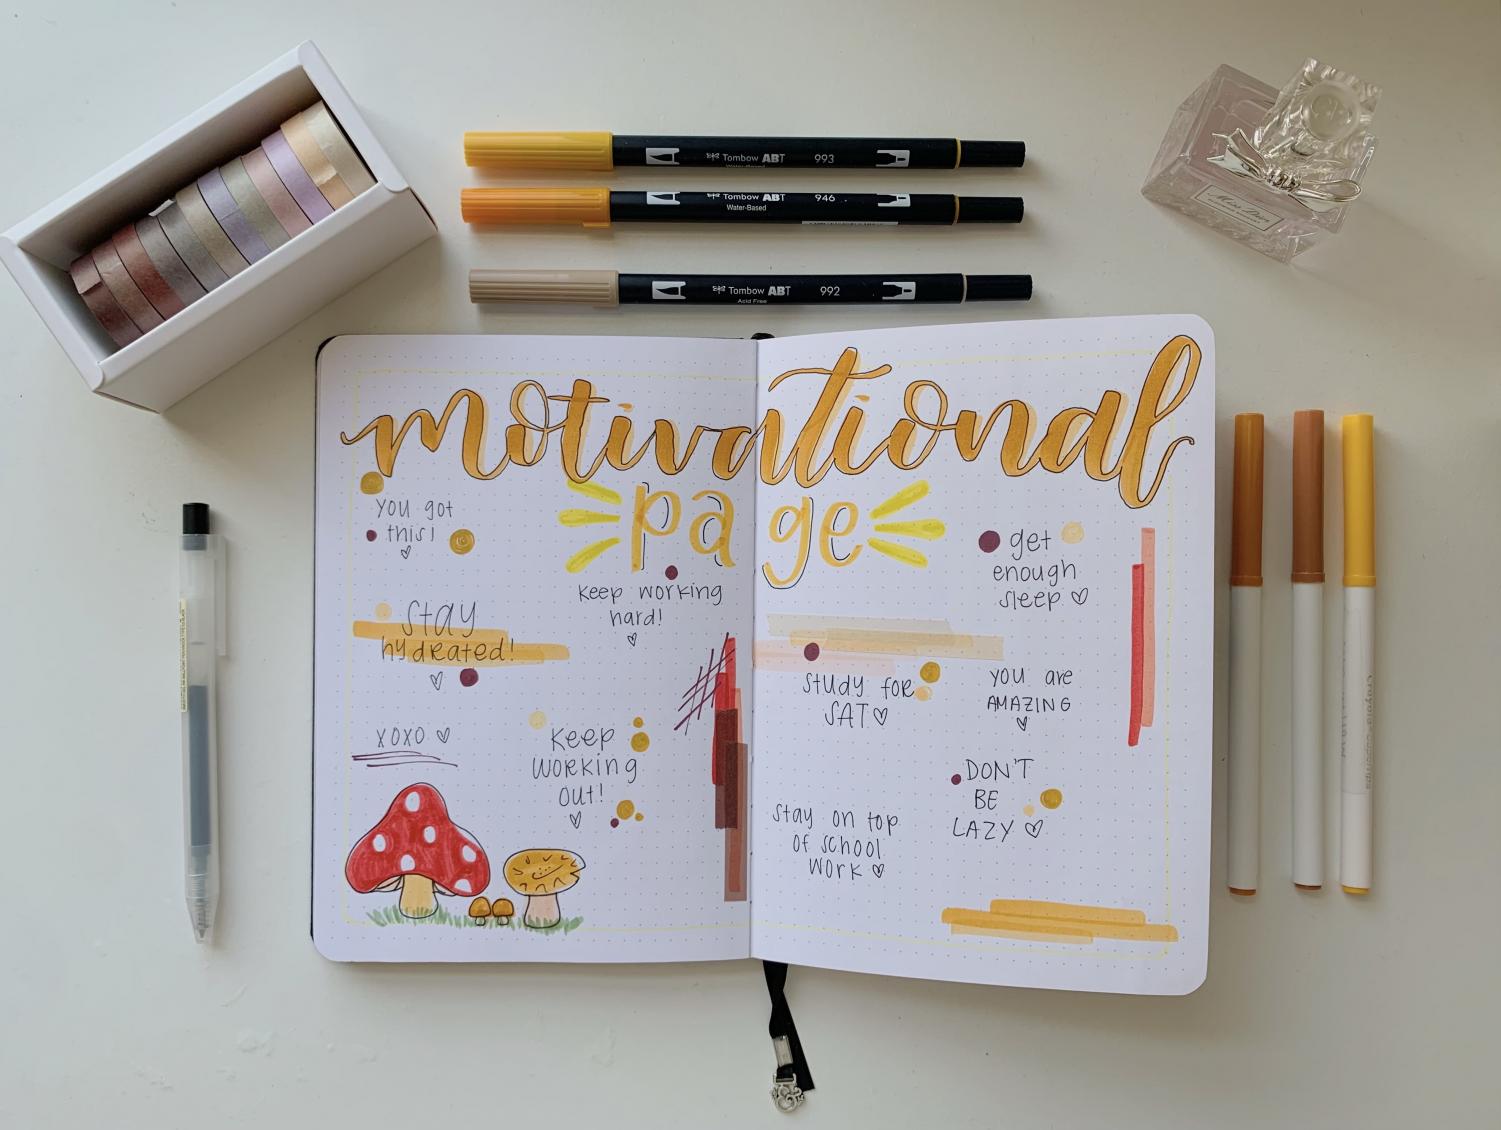 Tombow ABT 993
Water-Based
Tombow ABT 946
Water-Based
Tombow ABT 992
Acid Free
Miss Dior
motivational
page
you got
this!
keep working
hard!
Stay
hydrated!
xoxo
Keep
working
out!
get
enough
sleep
Study for
SAT
you are
AMAZING
DON'T
BE
LAZY
Stay on top
of school
work
Crayola